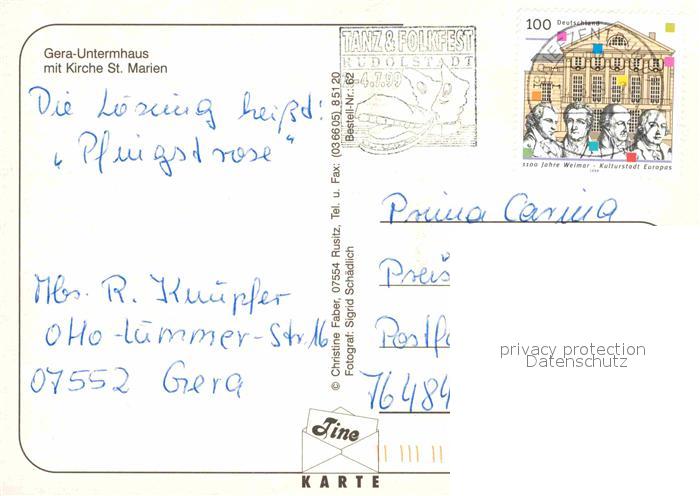 Gera-Untermhaus
mit Kirche St. Marien
Die Lösung heißt:
„Pfingstrose“
Abs. R. Knüpfer
Otto-Lummer-Str. 16
07552 Gera
© Christine Faber, 07554 Rusitz, Tel. u. Fax: (036605) 85120
Fotograf: Sigrid Schädlich
Bestell-Nr.: 62
TANZ & FOLKFEST
RUDOLSTADT
-4.7.99
BRIEFZENTRUM
100 Deutschland
1100 Jahre Weimar - Kulturstadt Europas
1999
Prima Carina
Preis
Postf
76484
privacy protection
Datenschutz
Tine
KARTE